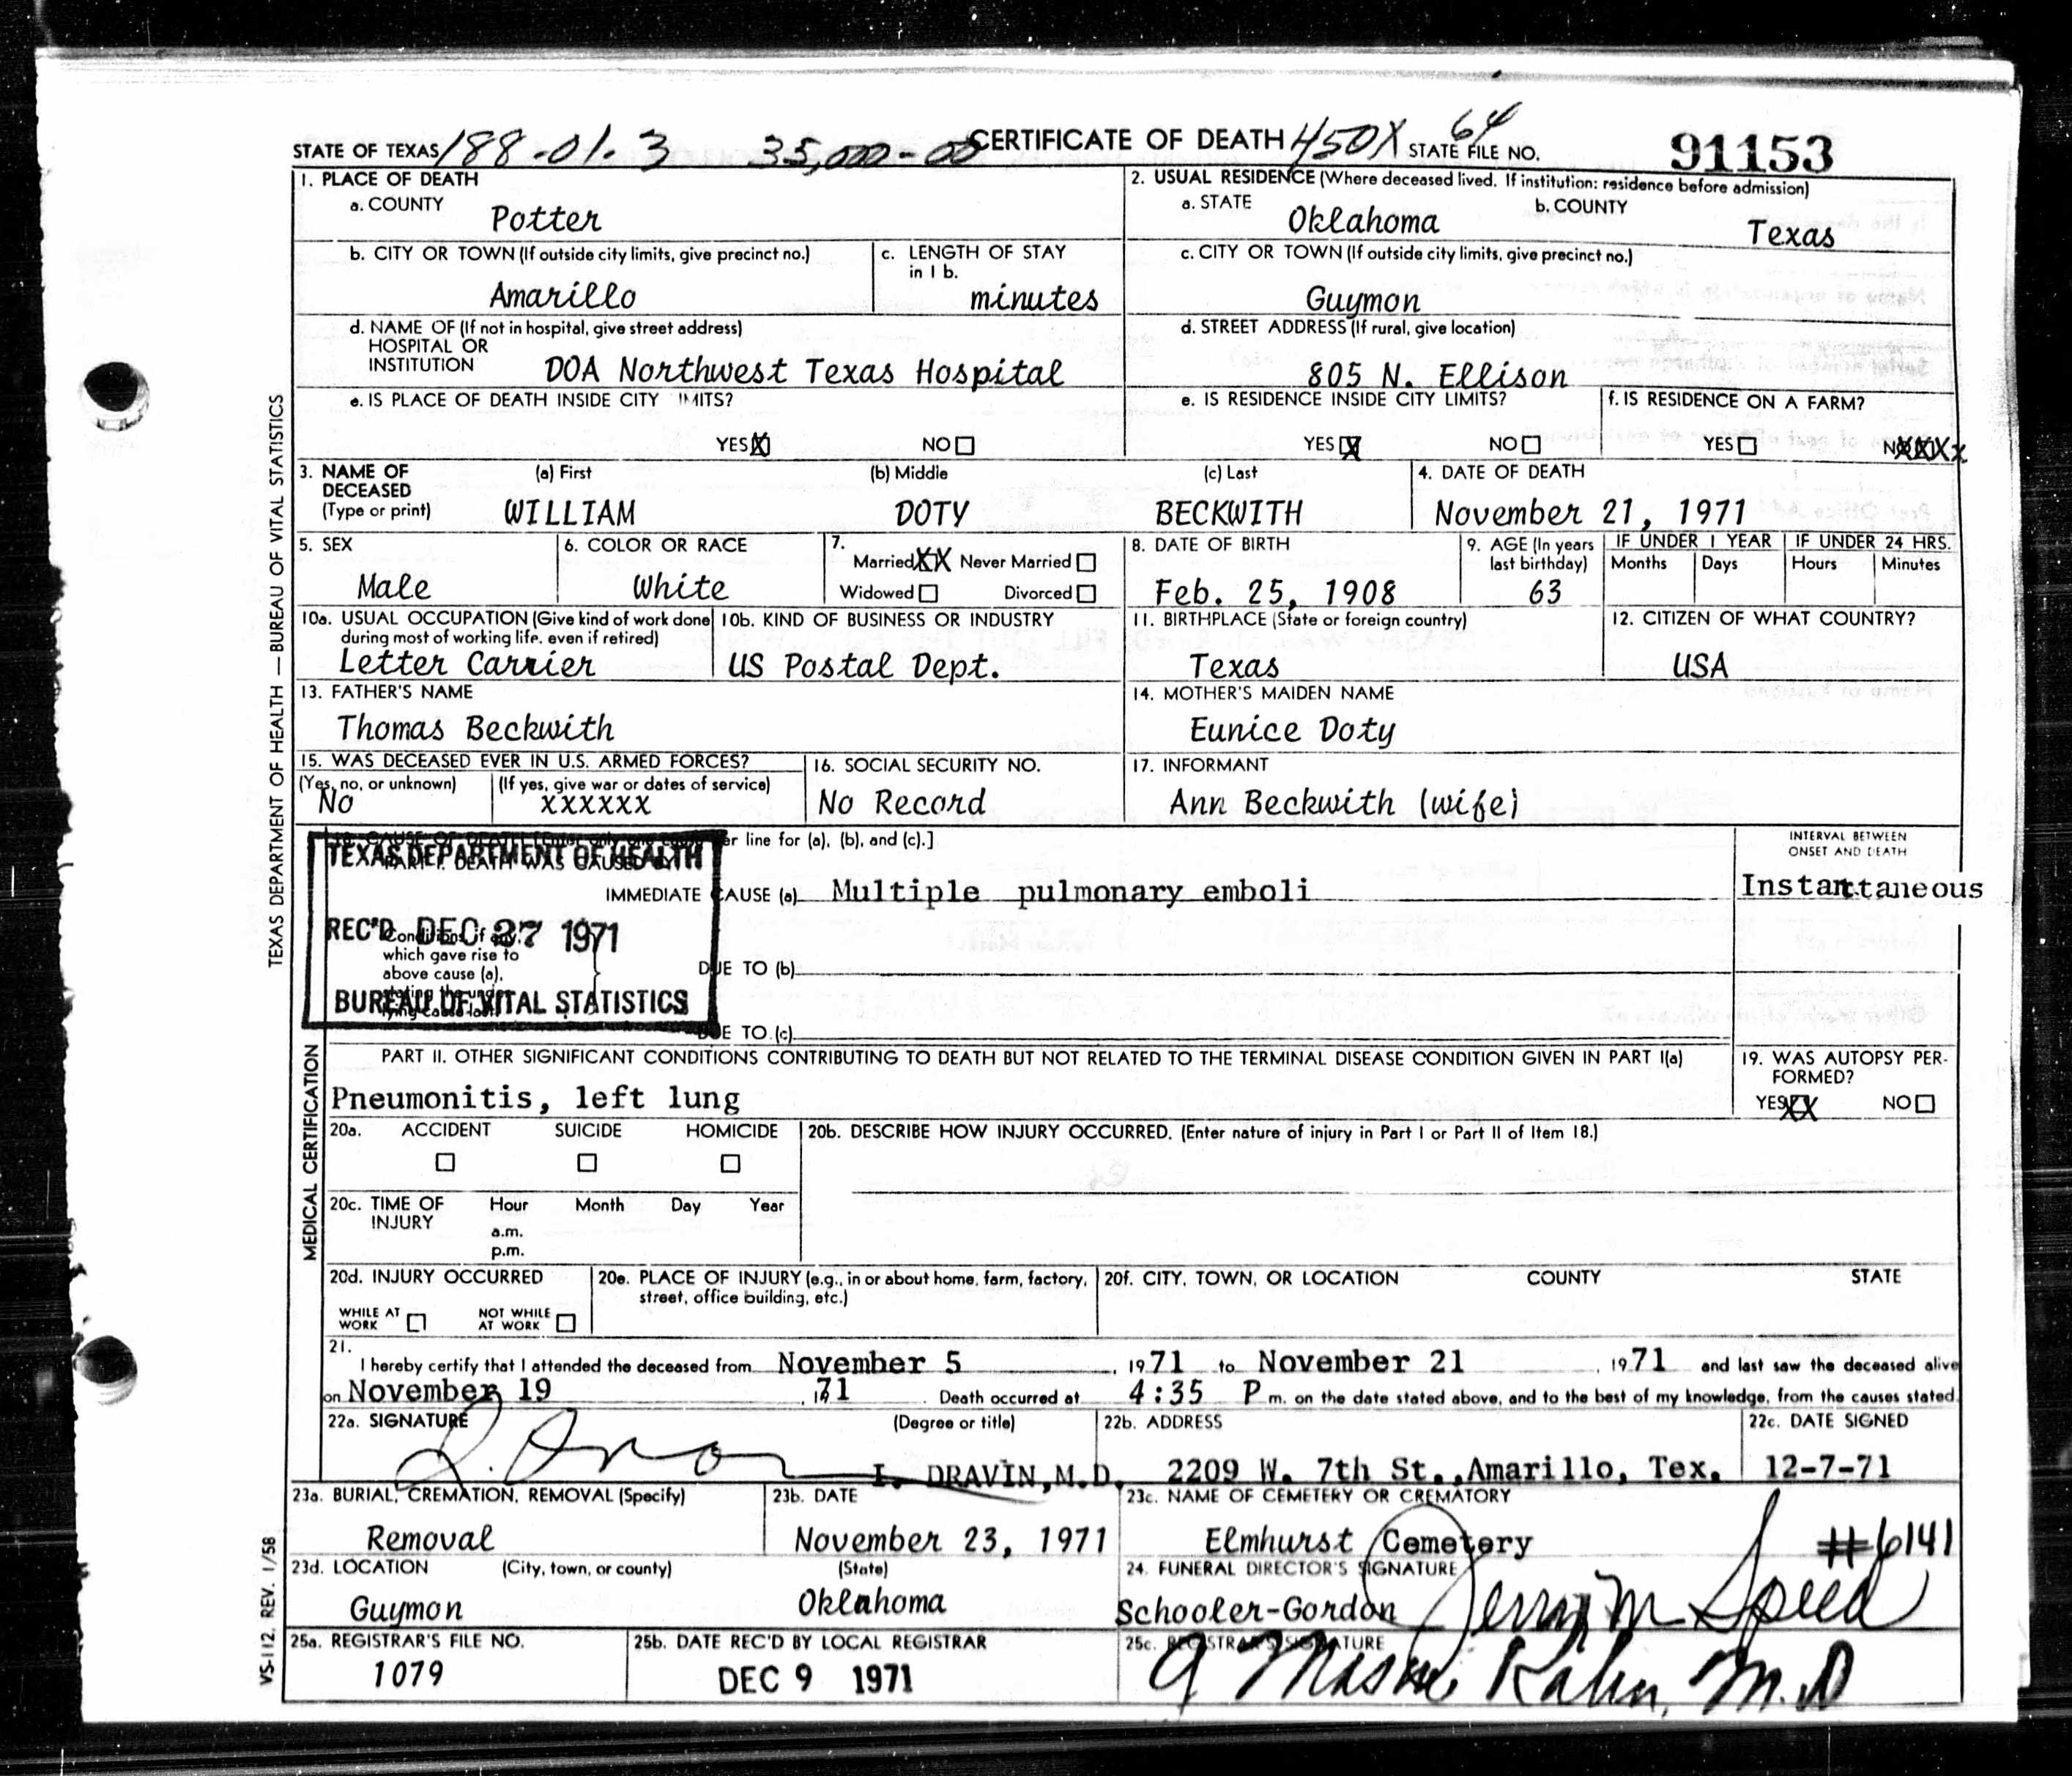 STATE OF TEXAS 188-01.3 35,000-00 CERTIFICATE OF DEATH 450X 64 STATE FILE NO. 91153
1. PLACE OF DEATH
a. COUNTY Potter
2. USUAL RESIDENCE (Where deceased lived. If institution: residence before admission)
a. STATE Oklahoma b. COUNTY Texas
b. CITY OR TOWN (If outside city limits, give precinct no.) Amarillo
c. LENGTH OF STAY in 1 b. minutes
c. CITY OR TOWN (If outside city limits, give precinct no.) Guymon
d. NAME OF (If not in hospital, give street address)
HOSPITAL OR
INSTITUTION DOA Northwest Texas Hospital
d. STREET ADDRESS (If rural, give location)
805 N. Ellison
e. IS PLACE OF DEATH INSIDE CITY IMITS?
YES X NO
e. IS RESIDENCE INSIDE CITY LIMITS?
YES X NO
f. IS RESIDENCE ON A FARM?
YES NXXXx
3. NAME OF DECEASED (Type or print)
(a) First WILLIAM
(b) Middle DOTY
(c) Last BECKWITH
4. DATE OF DEATH
November 21, 1971
5. SEX
Male
6. COLOR OR RACE
White
7.
Married XX Never Married
Widowed Divorced
8. DATE OF BIRTH
Feb. 25, 1908
9. AGE (In years last birthday)
63
IF UNDER 1 YEAR
Months Days
IF UNDER 24 HRS.
Hours Minutes
10a. USUAL OCCUPATION (Give kind of work done during most of working life, even if retired)
Letter Carrier
10b. KIND OF BUSINESS OR INDUSTRY
US Postal Dept.
11. BIRTHPLACE (State or foreign country)
Texas
12. CITIZEN OF WHAT COUNTRY?
USA
13. FATHER'S NAME
Thomas Beckwith
14. MOTHER'S MAIDEN NAME
Eunice Doty
15. WAS DECEASED EVER IN U.S. ARMED FORCES?
(Yes, no, or unknown) (If yes, give war or dates of service)
No xxxxxx
16. SOCIAL SECURITY NO.
No Record
17. INFORMANT
Ann Beckwith (wife)
18. CAUSE OF DEATH [Enter only one cause per line for (a), (b), and (c).]
PART I. DEATH WAS CAUSED BY:
TEXAS DEPARTMENT OF HEALTH
REC'D DEC 27 1971
BUREAU OF VITAL STATISTICS
IMMEDIATE CAUSE (a) Multiple pulmonary emboli
INTERVAL BETWEEN ONSET AND DEATH
Instanttaneous
Conditions, if any,
which gave rise to
above cause (a),
stating the under-
lying cause last.
DUE TO (b)
DUE TO (c)
PART II. OTHER SIGNIFICANT CONDITIONS CONTRIBUTING TO DEATH BUT NOT RELATED TO THE TERMINAL DISEASE CONDITION GIVEN IN PART I(a)
Pneumonitis, left lung
19. WAS AUTOPSY PER-
FORMED?
YES XX NO
20a. ACCIDENT SUICIDE HOMICIDE
20b. DESCRIBE HOW INJURY OCCURRED. (Enter nature of injury in Part I or Part II of Item 18.)
20c. TIME OF INJURY Hour Month Day Year
a.m.
p.m.
20d. INJURY OCCURRED
WHILE AT WORK NOT WHILE AT WORK
20e. PLACE OF INJURY (e.g., in or about home, farm, factory, street, office building, etc.)
20f. CITY, TOWN, OR LOCATION COUNTY STATE
21.
I hereby certify that I attended the deceased from November 5, 1971 to November 21, 1971 and last saw the deceased alive
on November 19, 1971. Death occurred at 4:35 P m. on the date stated above, and to the best of my knowledge, from the causes stated.
22a. SIGNATURE (Degree or title)
I. DRAVIN, M.D.
22b. ADDRESS
2209 W. 7th St., Amarillo, Tex.
22c. DATE SIGNED
12-7-71
23a. BURIAL, CREMATION, REMOVAL (Specify)
Removal
23b. DATE
November 23, 1971
23c. NAME OF CEMETERY OR CREMATORY
Elmhurst Cemetery
#6141
23d. LOCATION (City, town, or county) (State)
Guymon Oklahoma
24. FUNERAL DIRECTOR'S SIGNATURE
Schooler-Gordon Jerry M Speed
25a. REGISTRAR'S FILE NO.
1079
25b. DATE REC'D BY LOCAL REGISTRAR
DEC 9 1971
25c. REGISTRAR'S SIGNATURE
Kahn, M.D
TEXAS DEPARTMENT OF HEALTH — BUREAU OF VITAL STATISTICS
MEDICAL CERTIFICATION
VS-112, REV. 1/58